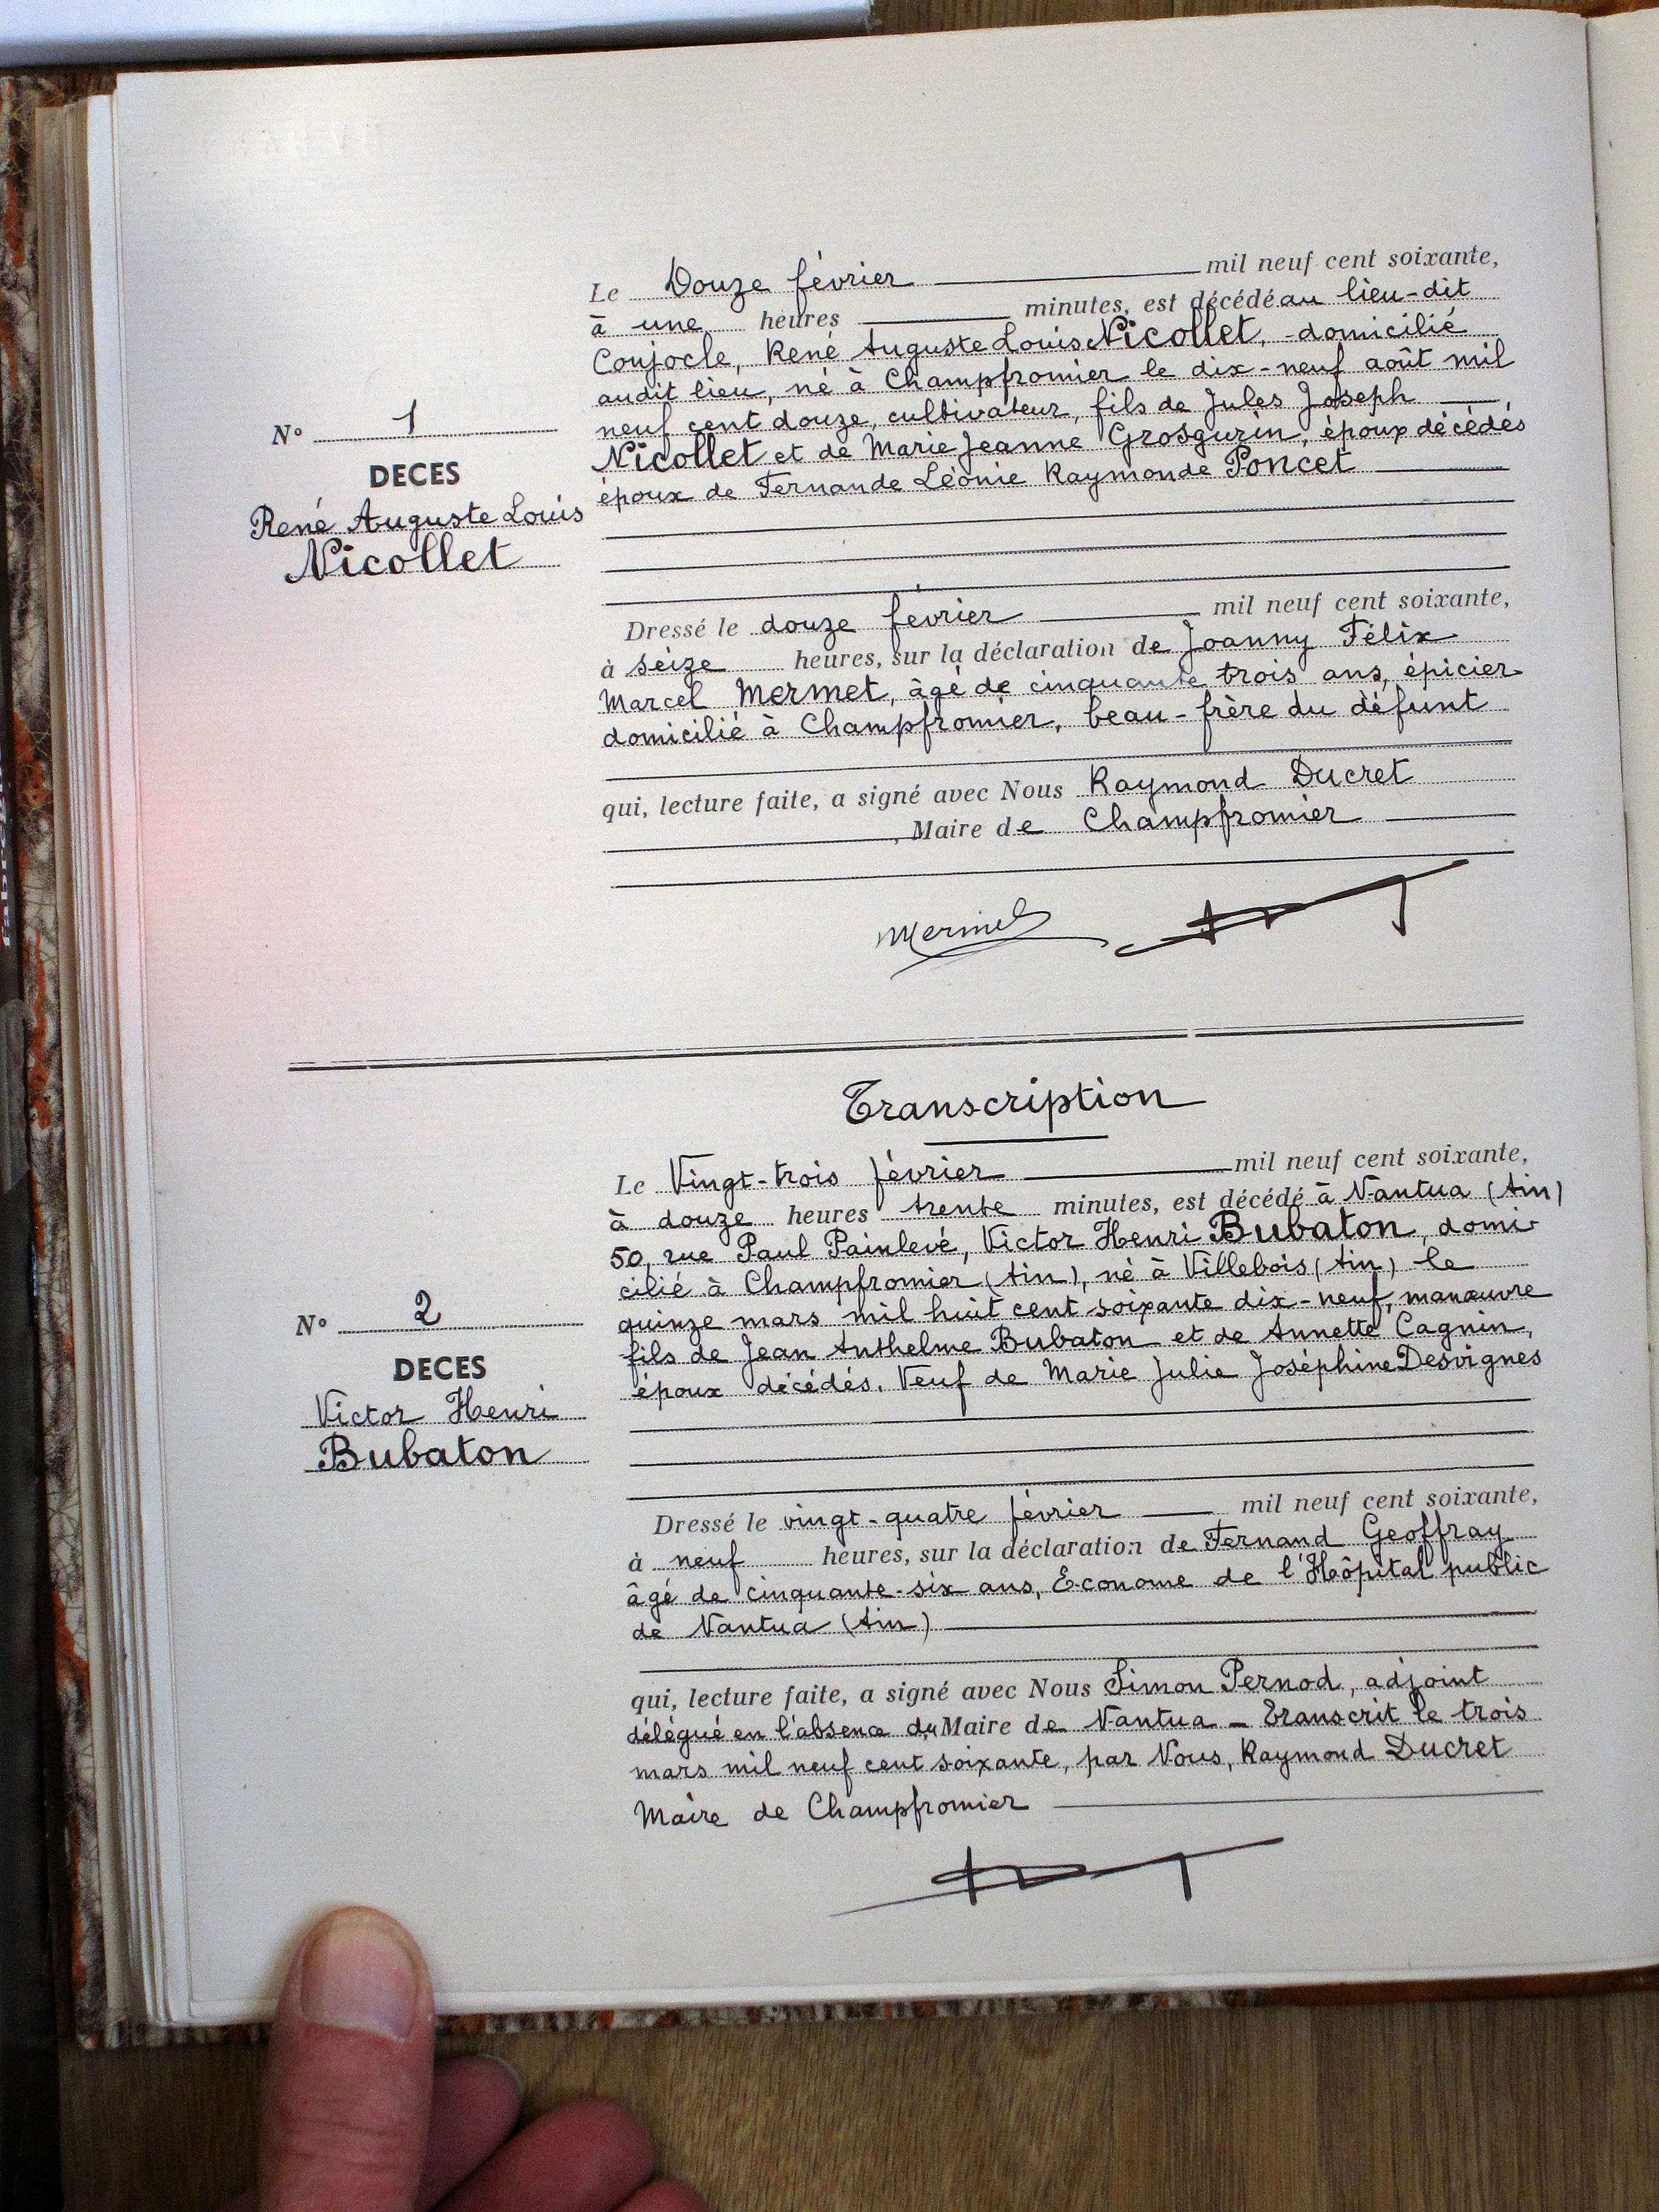 Le Douze février mil neuf cent soixante,
à une heures minutes, est décédé au lieu-dit
Conjocle, René Auguste Louis Nicollet, domicilié
audit lieu, né à Champfromier le dix-neuf août mil
neuf cent douze, cultivateur, fils de Jules Joseph
Nicollet et de Marie Jeanne Grosgurin, époux décédés
époux de Fernande Léonie Raymonde Poncet
N° 1
DECES
René Auguste Louis
Nicollet
Dressé le douze février mil neuf cent soixante,
à seize heures, sur la déclaration de Joanny Félix
Marcel Mermet, âgé de cinquante trois ans, épicier
domicilié à Champfromier, beau-frère du défunt
qui, lecture faite, a signé avec Nous Raymond Ducret
, Maire de Champfromier
Mermet
Transcription
Le Vingt-trois février mil neuf cent soixante,
à douze heures trente minutes, est décédé à Nantua (Ain)
50, rue Paul Painlevé, Victor Henri Bubaton, domi-
cilié à Champfromier (Ain), né à Villebois (Ain) le
quinze mars mil huit cent soixante dix-neuf, manœuvre
fils de Jean Anthelme Bubaton et de Annette Cagnin,
époux décédés. Veuf de Marie Julie Joséphine Desvignes
N° 2
DECES
Victor Henri
Bubaton
Dressé le vingt-quatre février mil neuf cent soixante,
à neuf heures, sur la déclaration de Fernand Geoffray
âgé de cinquante-six ans, Econome de l'Hôpital public
de Nantua (Ain)
qui, lecture faite, a signé avec Nous Simon Pernod, adjoint
délégué en l'absence du Maire de Nantua – Transcrit le trois
mars mil neuf cent soixante, par Nous, Raymond Ducret
Maire de Champfromier